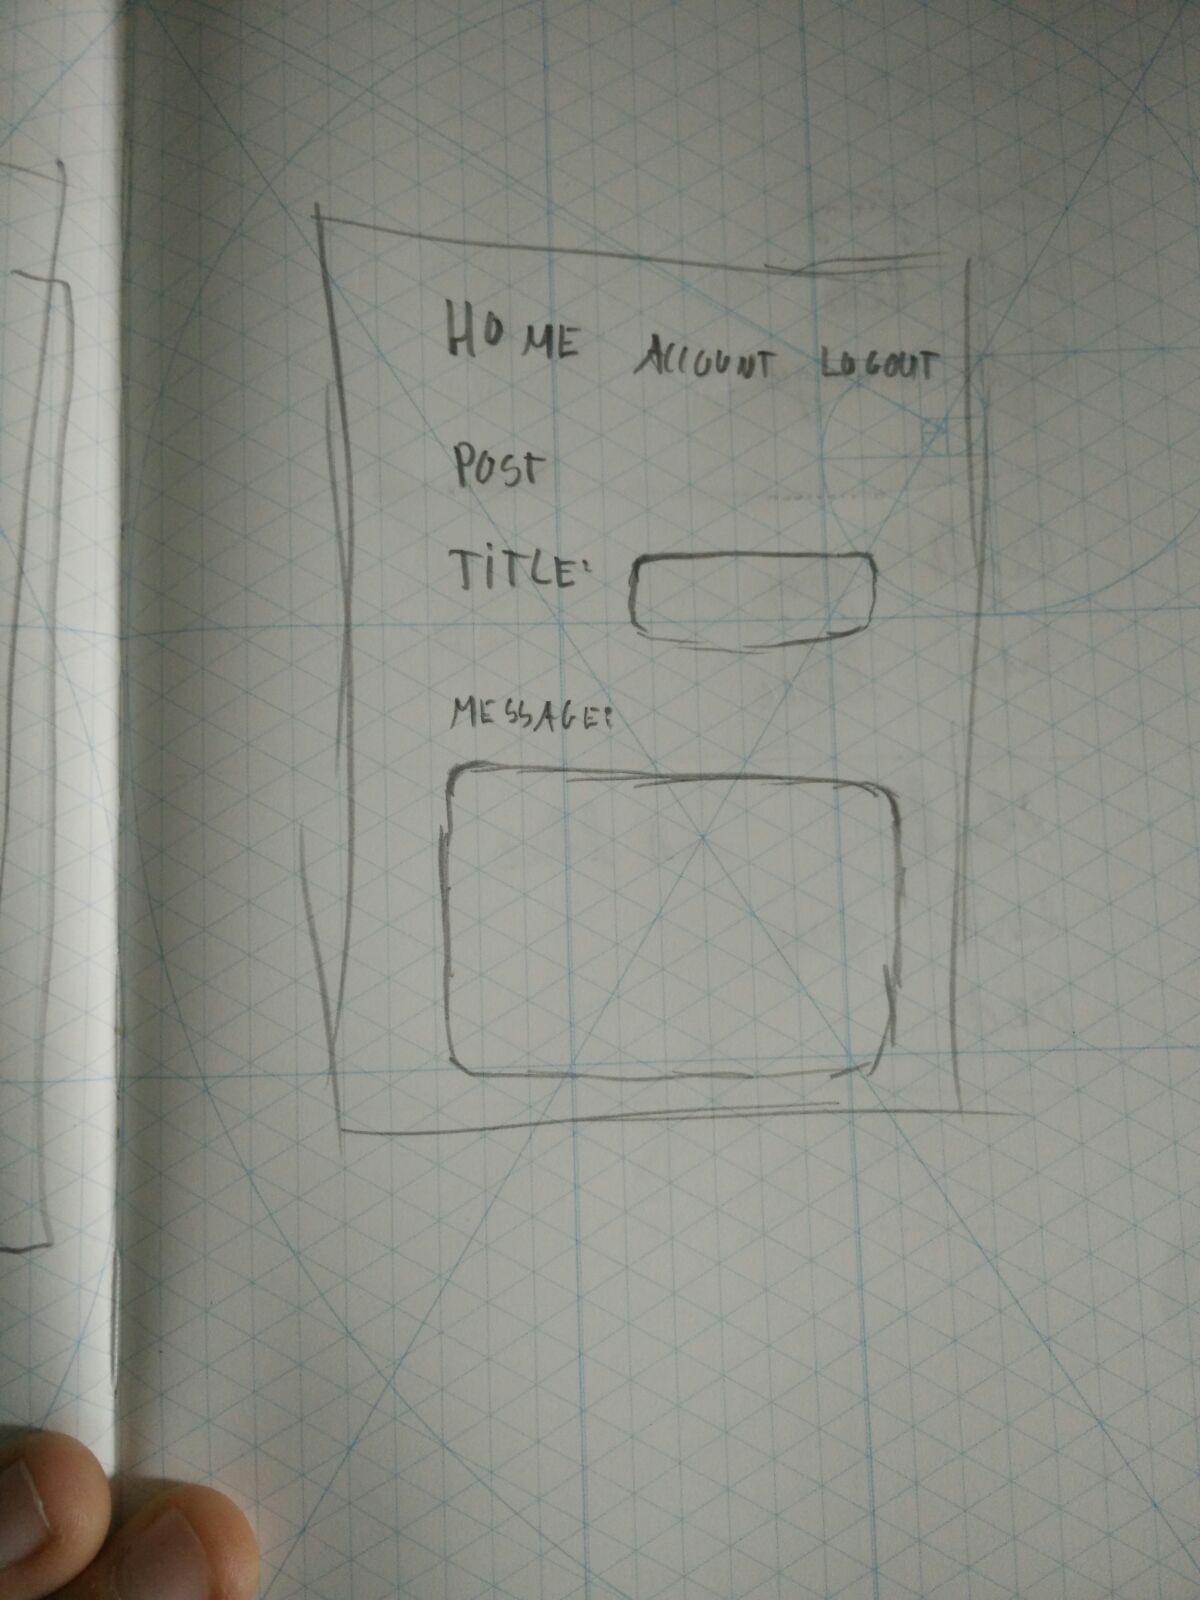 HOME ACCOUNT LOGOUT
POST
TiTLE:
MESSAGE: